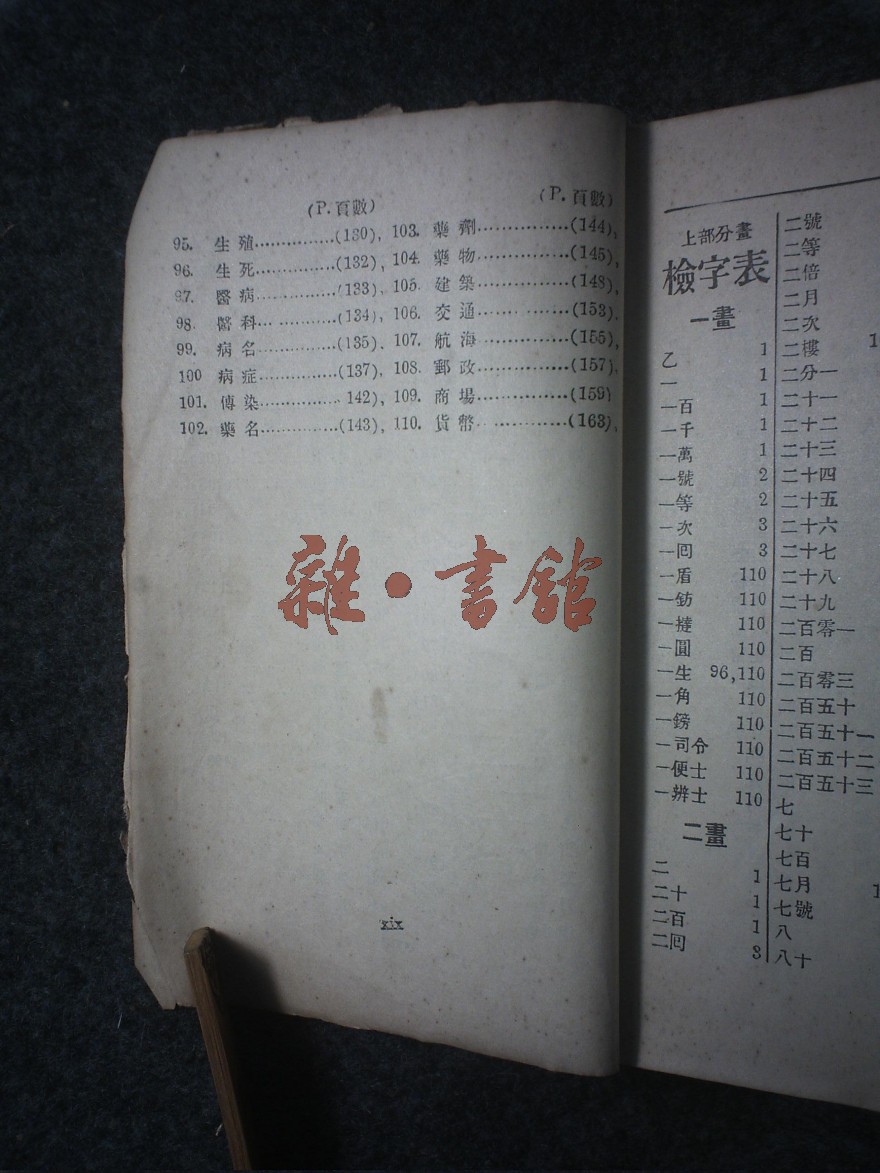 (P.頁數) (P.頁數)
95. 生殖……………(130), 103. 藥劑……………(144),
96. 生死……………(132), 104. 藥物……………(145),
97. 醫病……………(133), 105. 建築……………(148),
98. 醫科……………(134), 106. 交通……………(153).
99. 病名……………(135). 107. 航海……………(155),
100 病症……………(137), 108. 郵政……………(157),
101. 傳染…………… 142), 109. 商場……………(159)
102. 藥名……………(143), 110. 貨幣……………(163),
雜•書館
xix
上部分畫
檢字表
一畫
乙 1
一 1
一百 1
一千 1
一萬 1
一號 2
一等 2
一次 3
一囘 3
一盾 110
一鈁 110
一撻 110
一圓 110
一生 96,110
一角 110
一鎊 110
一司令 110
一便士 110
一辨士 110
二畫
二 1
二十 1
二百 1
二囘 3
二號
二等
二倍
二月
二次
二樓
二分一
二十一
二十二
二十三
二十四
二十五
二十六
二十七
二十八
二十九
二百零一
二百
二百零三
二百五十
二百五十一
二百五十二
二百五十三
七
七十
七百
七月
七號
八
八十